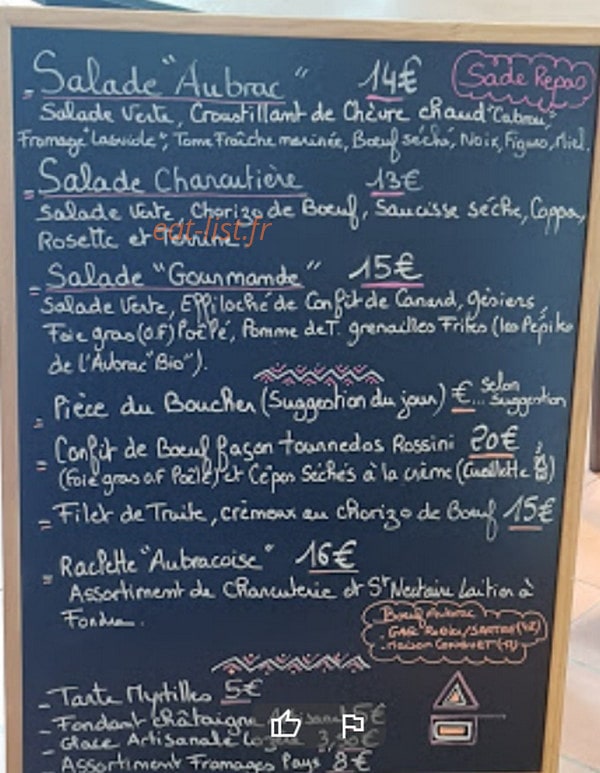 - Salade "Aubrac" 14€
Salade Repas
Salade Verte, Croustillant de Chèvre chaud "Cabrou",
Fromage "Laguiole", Tome Fraîche marinée, Bœuf séché, Noix, Figues, Miel.
= Salade Charcutière 13€
Salade Verte, Chorizo de Bœuf, Saucisse sèche, Coppa,
Rosette et Terrine.
eat-list.fr
= Salade "Gourmande" 15€
Salade Verte, Effiloché de Confit de Canard, gésiers,
Foie gras (O.F) Poêlé, Pomme de T. grenailles Frites (les Pépites
de l'Aubrac "Bio").
= Pièce du Boucher (Suggestion du jour) €... Selon
Suggestion
= Confit de Bœuf façon tournedos Rossini 20€
(Foie gras O.F Poêlé) et Cèpes Séchés à la crème (Cueillette)
= Filet de Truite, crémeux au chorizo de Bœuf 15€
= Raclette "Aubracoise" 16€
Assortiment de Charcuterie et St Nectaire Laitier à
Fondre.
Bœuf Aubrac
- Maison
- Tarte Myrtilles 5€
- Fondant châtaigne Artisanal 5€
- Glace Artisanale
- Assortiment Fromages Pays 8€